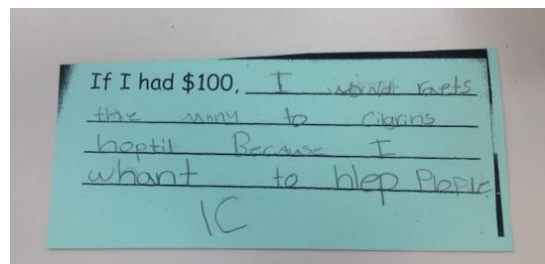 If I had $100, I would raets
the mony to cilgrins
hoptil Because I
whant to hlep Plople
1C